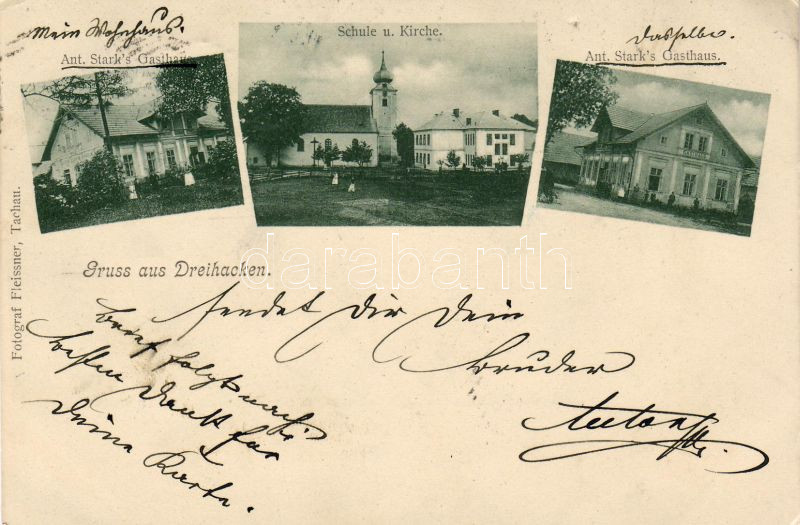 Mein Wohnhaus.
Ant. Stark's Gasthaus
Schule u. Kirche.
Dasselbe.
Ant. Stark's Gasthaus.
Fotograf Fleissner, Tachau.
Gruss aus Dreihacken.
sendet Dir Dein
Bruder
Anton
Brief folgt nach.
besten Dank für
Deine Karte.
darabanth